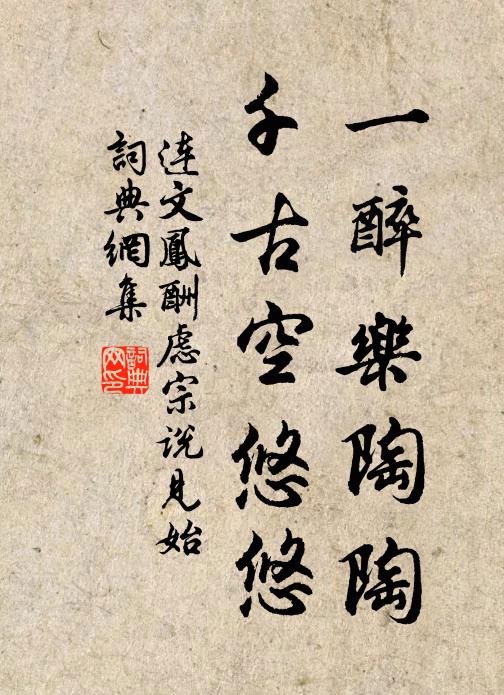 一醉樂陶陶
千古空悠悠
連文鳳酬慮宗說見始
詞典網集
詞典网印